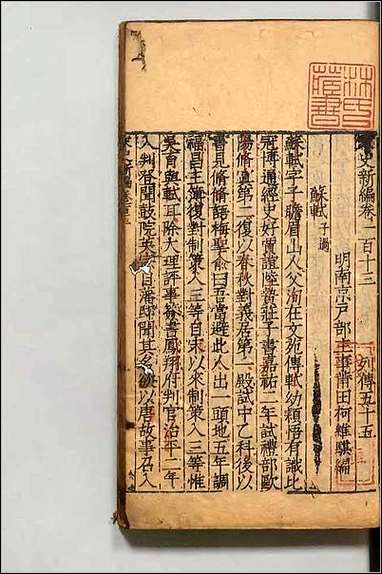 宋史新編卷一百十三
列傳五十五
明南京戶部主事莆田柯維騏編
蘇軾 子過
蘇軾字子瞻眉山人父洵在文苑傳軾幼穎悟有識比
冠博通經史好賈誼陸贄莊子書嘉祐二年試禮部歐
陽修寘第二復以春秋對義居第一殿試中乙科後以
書見修修語梅聖俞曰吾當避此人出一頭地五年調
福昌主簿復對制策入三等自宋以來制策入三等惟
吳育與軾耳除大理評事簽書鳳翔府判官治平二年
入判登聞鼓院英宗自藩邸聞其名欲以唐故事召入